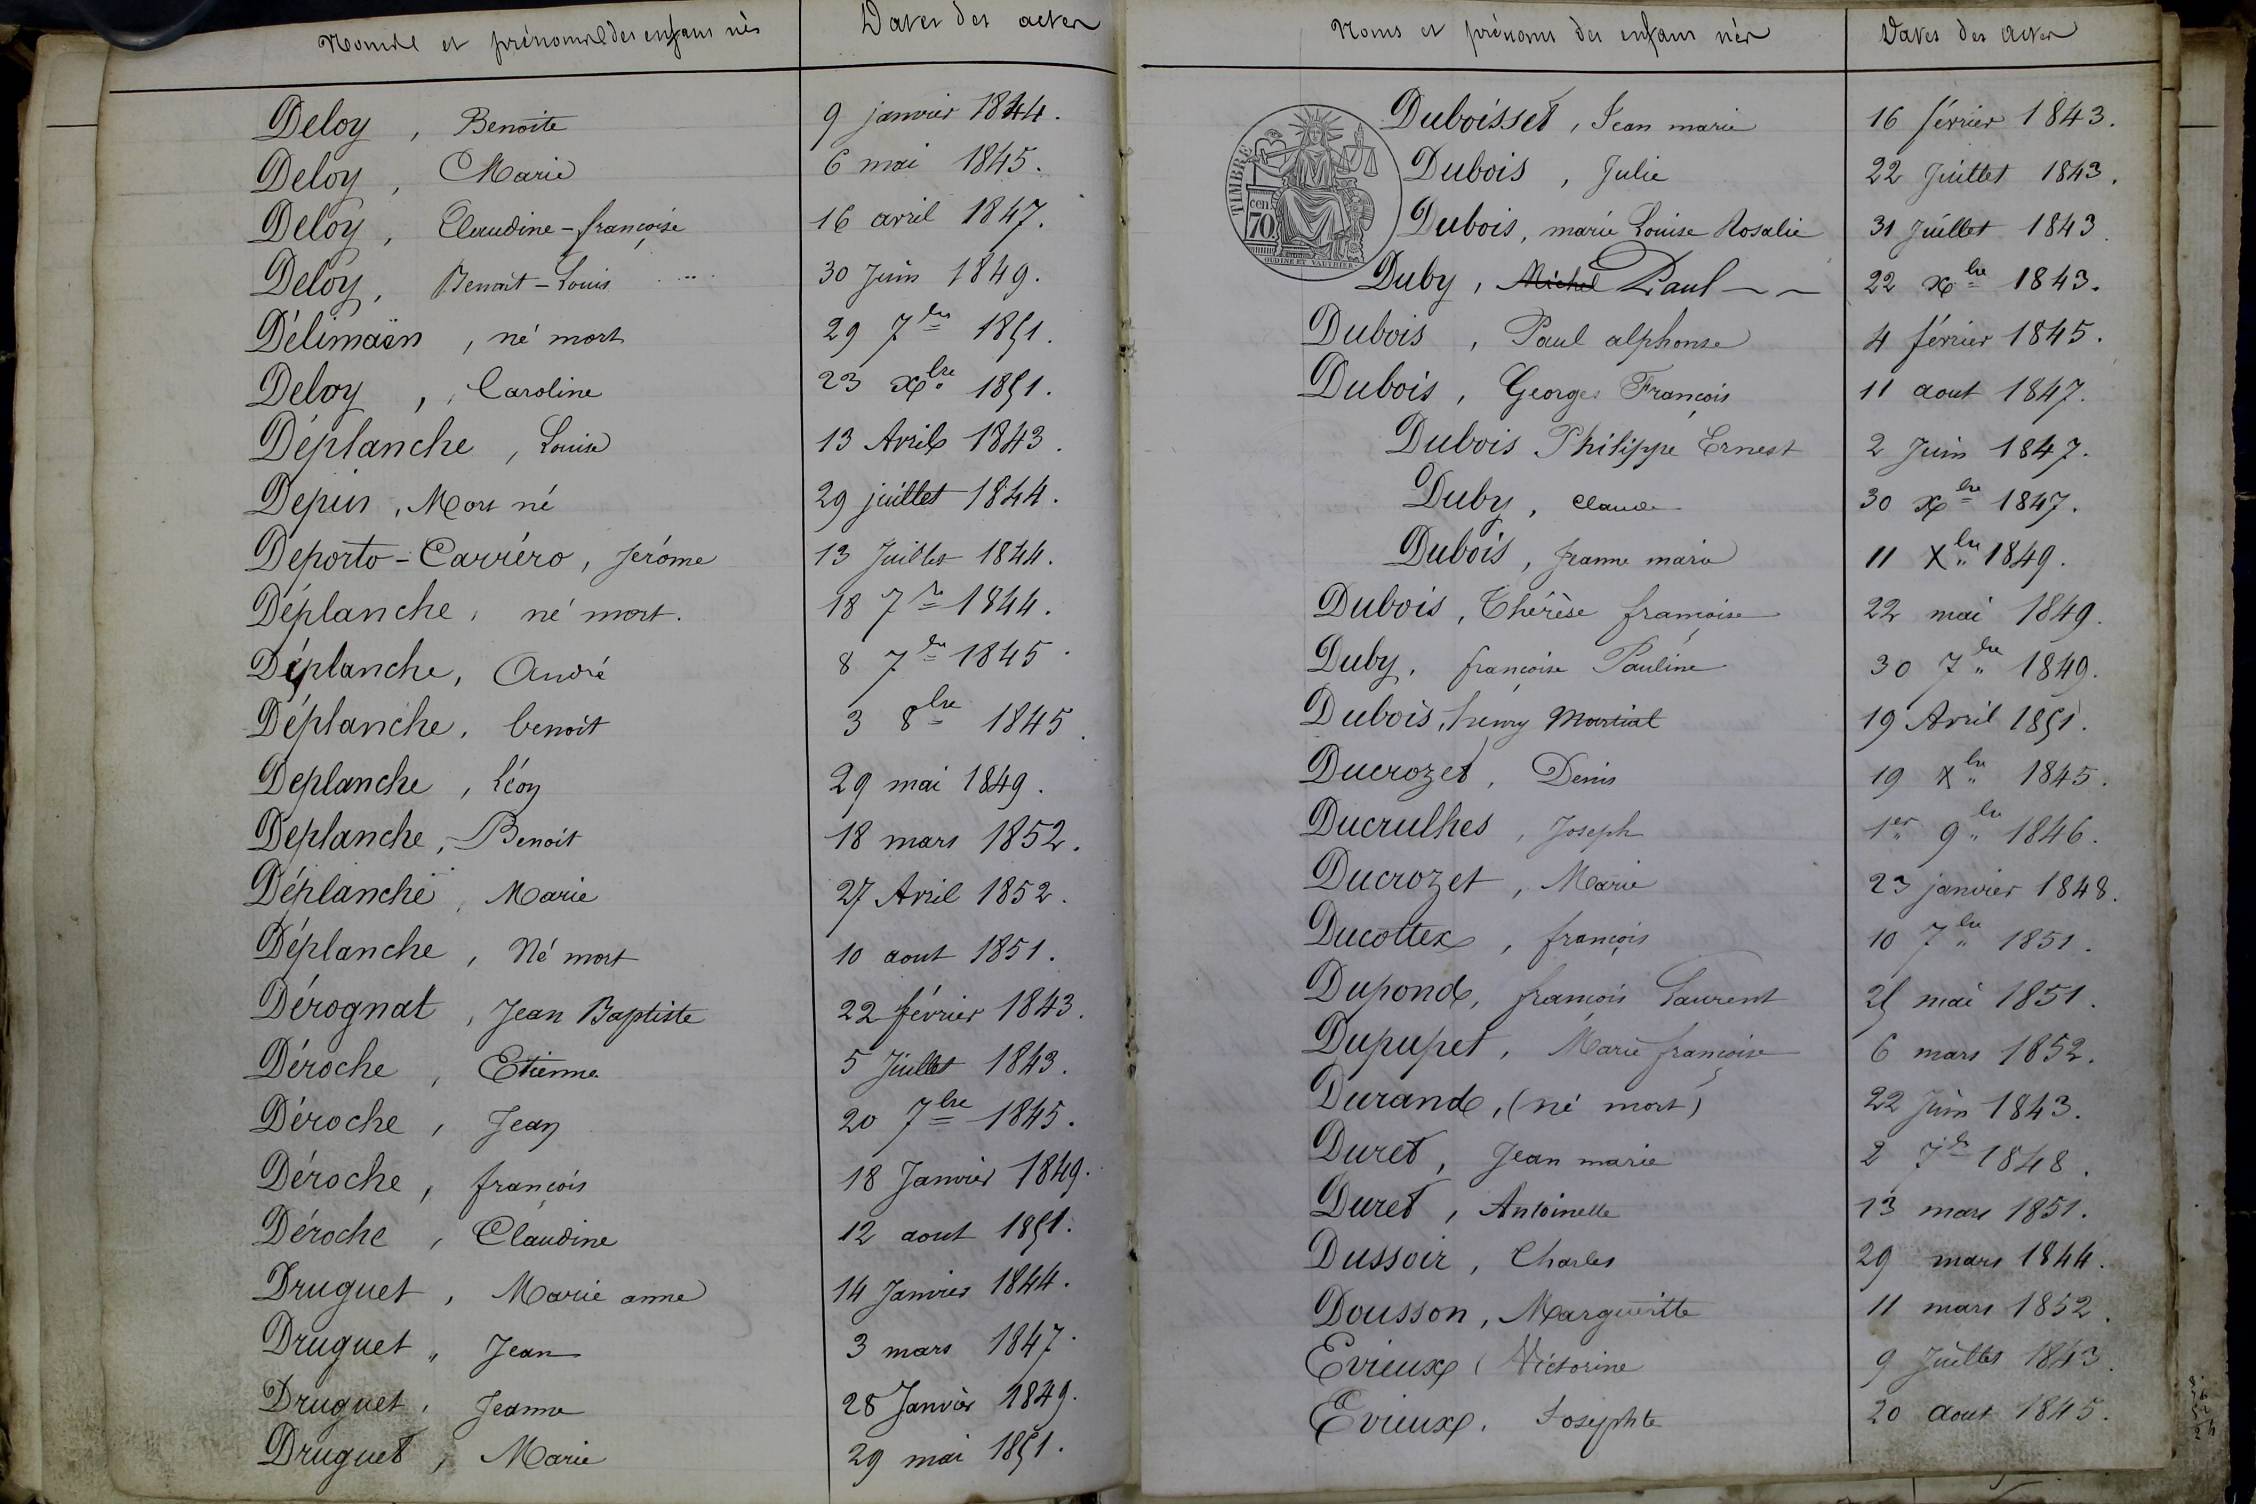 Noms et prénoms des enfans nés Dates des actes
Deloy, Benoite 9 janvier 1844.
Deloy, Marie 6 mai 1845.
Deloy, Claudine-françoise 16 avril 1847.
Deloy, Benoit-Louis 30 Juin 1849.
Délimaën, né mort 29 7bre 1851.
Deloy, Caroline 23 xbre 1851.
Déplanche, Louise 13 Avril 1843.
Depin, Mort né 29 juillet 1844.
Deporto-Carréro, Jérôme 13 Juillet 1844.
Déplanche, né mort. 18 7re 1844.
Déplanche, André 8 7bre 1845.
Déplanche, benoit 3 8bre 1845.
Deplanche, Léon 29 mai 1849.
Deplanche, Benoit 18 mars 1852.
Déplanche, Marie 27 Avril 1852.
Déplanche, Né mort 10 aout 1851.
Dérognat, Jean Baptiste 22 février 1843.
Déroche, Etienne 5 Juillet 1843.
Déroche, Jean 20 7bre 1845.
Déroche, françois 18 Janvier 1849.
Déroche, Claudine 12 aout 1851.
Druguet, Marie anne 14 Janvier 1844.
Druguet, Jean 3 mars 1847.
Druguet, Jeanne 28 Janvier 1849.
Druguet, Marie 29 mai 1851.
Noms et prénoms des enfans nés Dates des actes
TIMBRE
70 cen.
OUDINE ET VAUTHIER
Duboisset, Jean marie 16 février 1843.
Dubois, Julie 22 Juillet 1843.
Dubois, marie Louise Rosalie 31 Juillet 1843.
Duby, Michel Paul 22 xbre 1843.
Dubois, Paul alphonse 4 février 1845.
Dubois, Georges François 11 aout 1847.
Dubois Philippe Ernest 2 Juin 1847.
Duby, claude 30 xbre 1847.
Dubois, jeanne marie 11 Xbre 1849.
Dubois, Thérèse françoise 22 mai 1849.
Duby, françoise Pauline 30 7bre 1849.
Dubois, henry Martial 19 Avril 1851.
Ducrozet, Denis 19 Xbre 1845.
Ducrulhes, Joseph 1er 9bre 1846.
Ducrozet, Marie 23 janvier 1848.
Ducottex, françois 10 7bre 1851.
Dupond, françois Laurent 25 mai 1851.
Dupupet, Marie françoise 6 mars 1852.
Durand, (né mort) 22 Juin 1843.
Duret, Jean marie 2 7bre 1848.
Duret, Antoinette 13 mars 1851.
Dussoir, Charles 29 mars 1844.
Dousson, Margueritte 11 mars 1852.
Evieux, Victorine 9 Juillet 1843.
Evieux, Josephte 20 aout 1845.